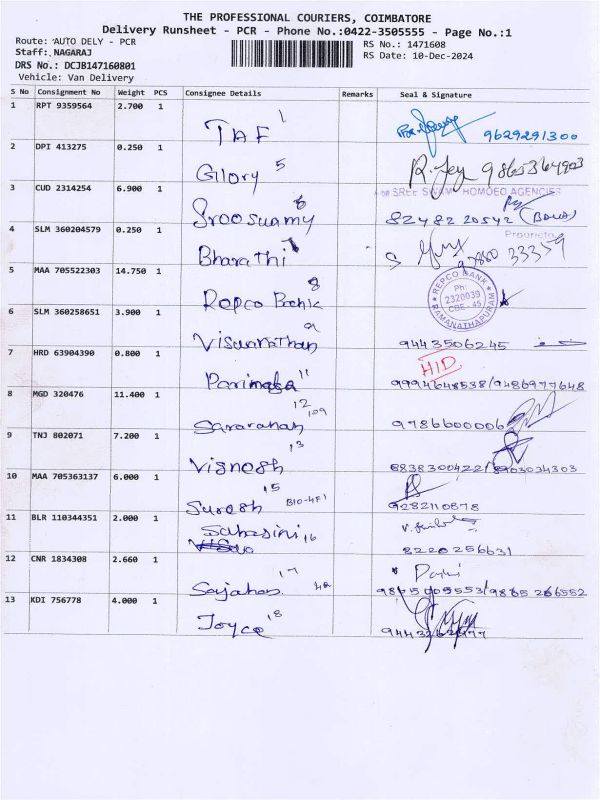 THE PROFESSIONAL COURIERS, COIMBATORE
Delivery Runsheet - PCR - Phone No.:0422-3505555 - Page No.:1
Route: AUTO DELY - PCR RS No.: 1471608
Staff: NAGARAJ RS Date: 10-Dec-2024
DRS No.: DCJB147160801
Vehicle: Van Delivery
S No Consignment No Weight PCS Consignee Details Remarks Seal & Signature
1 RPT 9359564 2.700 1 TAF 1 9629291300
2 DPI 413275 0.250 1 Glory 5 R. Jey
3 CUD 2314254 6.900 1 Srooswamy 6 For SREE SWAMY HOMOEO AGENCIES
82482 20542 (BALA)
Proprietor
4 SLM 360204579 0.250 1 Bharathi 7 33359
5 MAA 705522303 14.750 1 Repco Bank 8 REPCO BANK Ph: 2320039 CBE-45 RAMANATHAPURAM
6 SLM 360258651 3.900 1 Viswanathan 9 9443506245
7 HRD 63904390 0.800 1 Parimala 11 HID
9994648538/9486977648
8 MGD 320476 11.400 1 Saravanan 12 109 9786600006
9 TNJ 802071 7.200 1 Vignesh 13 6838300422/8903034303
10 MAA 705363137 6.000 1 Suresh 15 B10-4F1 9282110878
11 BLR 110344351 2.000 1 Suhasini 16
8220256631
12 CNR 1834308 2.660 1 Sajahan 17
/9865266552
13 KDI 756778 4.000 1 Joyce 18